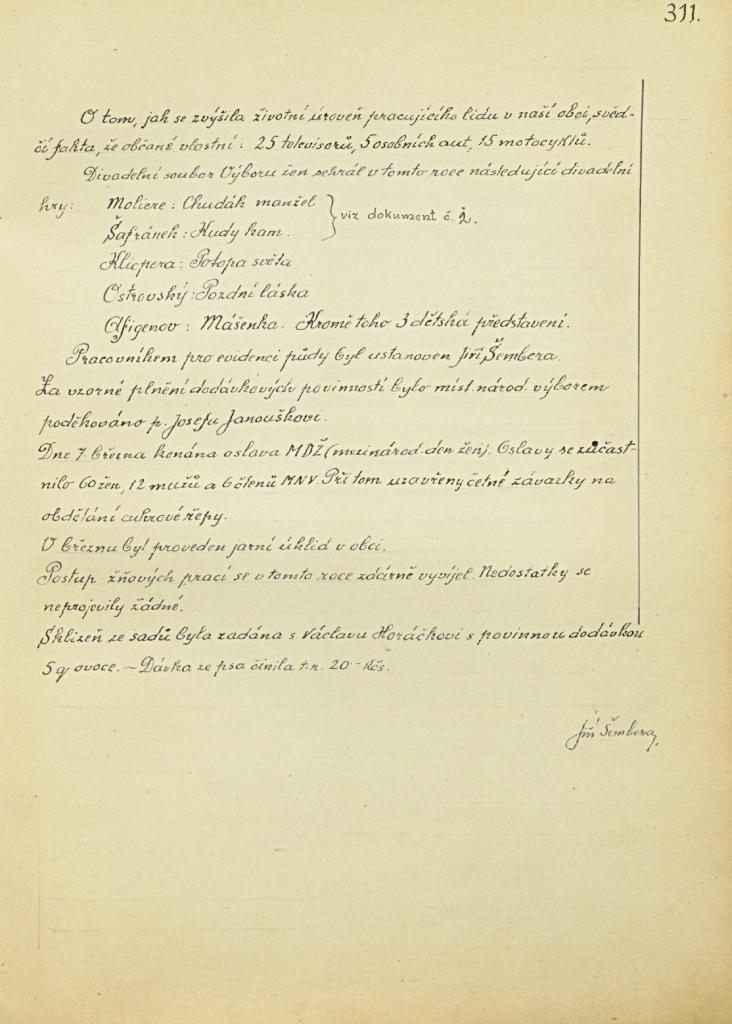 311.
O tom, jak se zvýšila životní úroveň pracujícího lidu v naší obci, svěd-
čí fakta, že občané vlastní: 25 televisorů, 5 osobních aut, 15 motocyklů.
Divadelní soubor Výboru žen sehrál v tomto roce následující divadelní
hry: Moliere: Chudák manžel
Šafránek: Kudy kam. } viz dokument č. 2.
Klicpera: Potopa světa
Ostrovský: Pozdní láska
Afigenov: Mášenka. Kromě toho 3 dětská představení.
Pracovníkem pro evidenci půdy byl ustanoven Jiří Šembera.
Za vzorné plnění dodávkových povinností bylo míst. národ. výborem
poděkováno p. Josefu Janouškovi.
Dne 7. března konána oslava MDŽ (mezinárod. den žen). Oslavy se zúčast-
nilo 60 žen, 12 mužů a 6 členů MNV. Při tom uzavřeny četné závazky na
obdělání cukrové řepy.
V březnu byl proveden jarní úklid v obci.
Postup žňových prací se v tomto roce zdárně vyvíjel. Nedostatky se
neprojevily žádné.
Sklizeň ze sadů byla zadána s Václavu Horáčkovi s povinnou dodávkou
5 q ovoce. – Dávka ze psa činila t.r. 20 – Kčs.
Jiří Šembera,